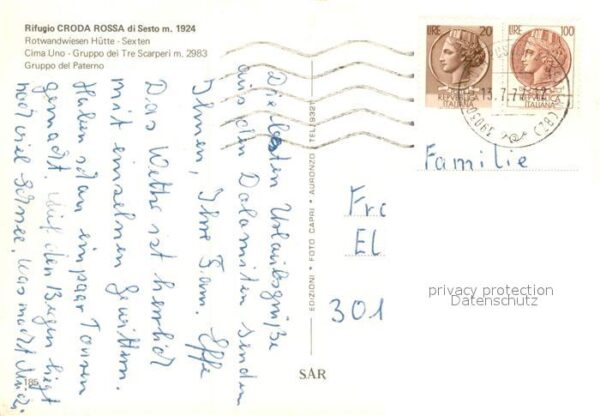 Rifugio CRODA ROSSA di Sesto m. 1924
Rotwandwiesen Hütte - Sexten
Cima Uno - Gruppo dei Tre Scarperi m. 2983
Gruppo del Paterno
Die besten Urlaubsgrüße
aus den Dolomiten senden
Ihnen, Ihre Fam. Effe
Das Wetter ist herrlich
mit einzelnen Gewittern.
Haben schon ein paar Touren
gemacht. Auf den Bergen liegt
noch viel Schnee. Was macht
185
EDIZIONI * FOTO CAPRI * AURONZO TEL. 9321
SAR
LIRE 20
REPUBBLICA
ITALIANA
LIRE 100
REPUBBLICA
ITALIANA
13.7.7
39030
(BZ)
Familie
Frc
El
301
privacy protection
Datenschutz